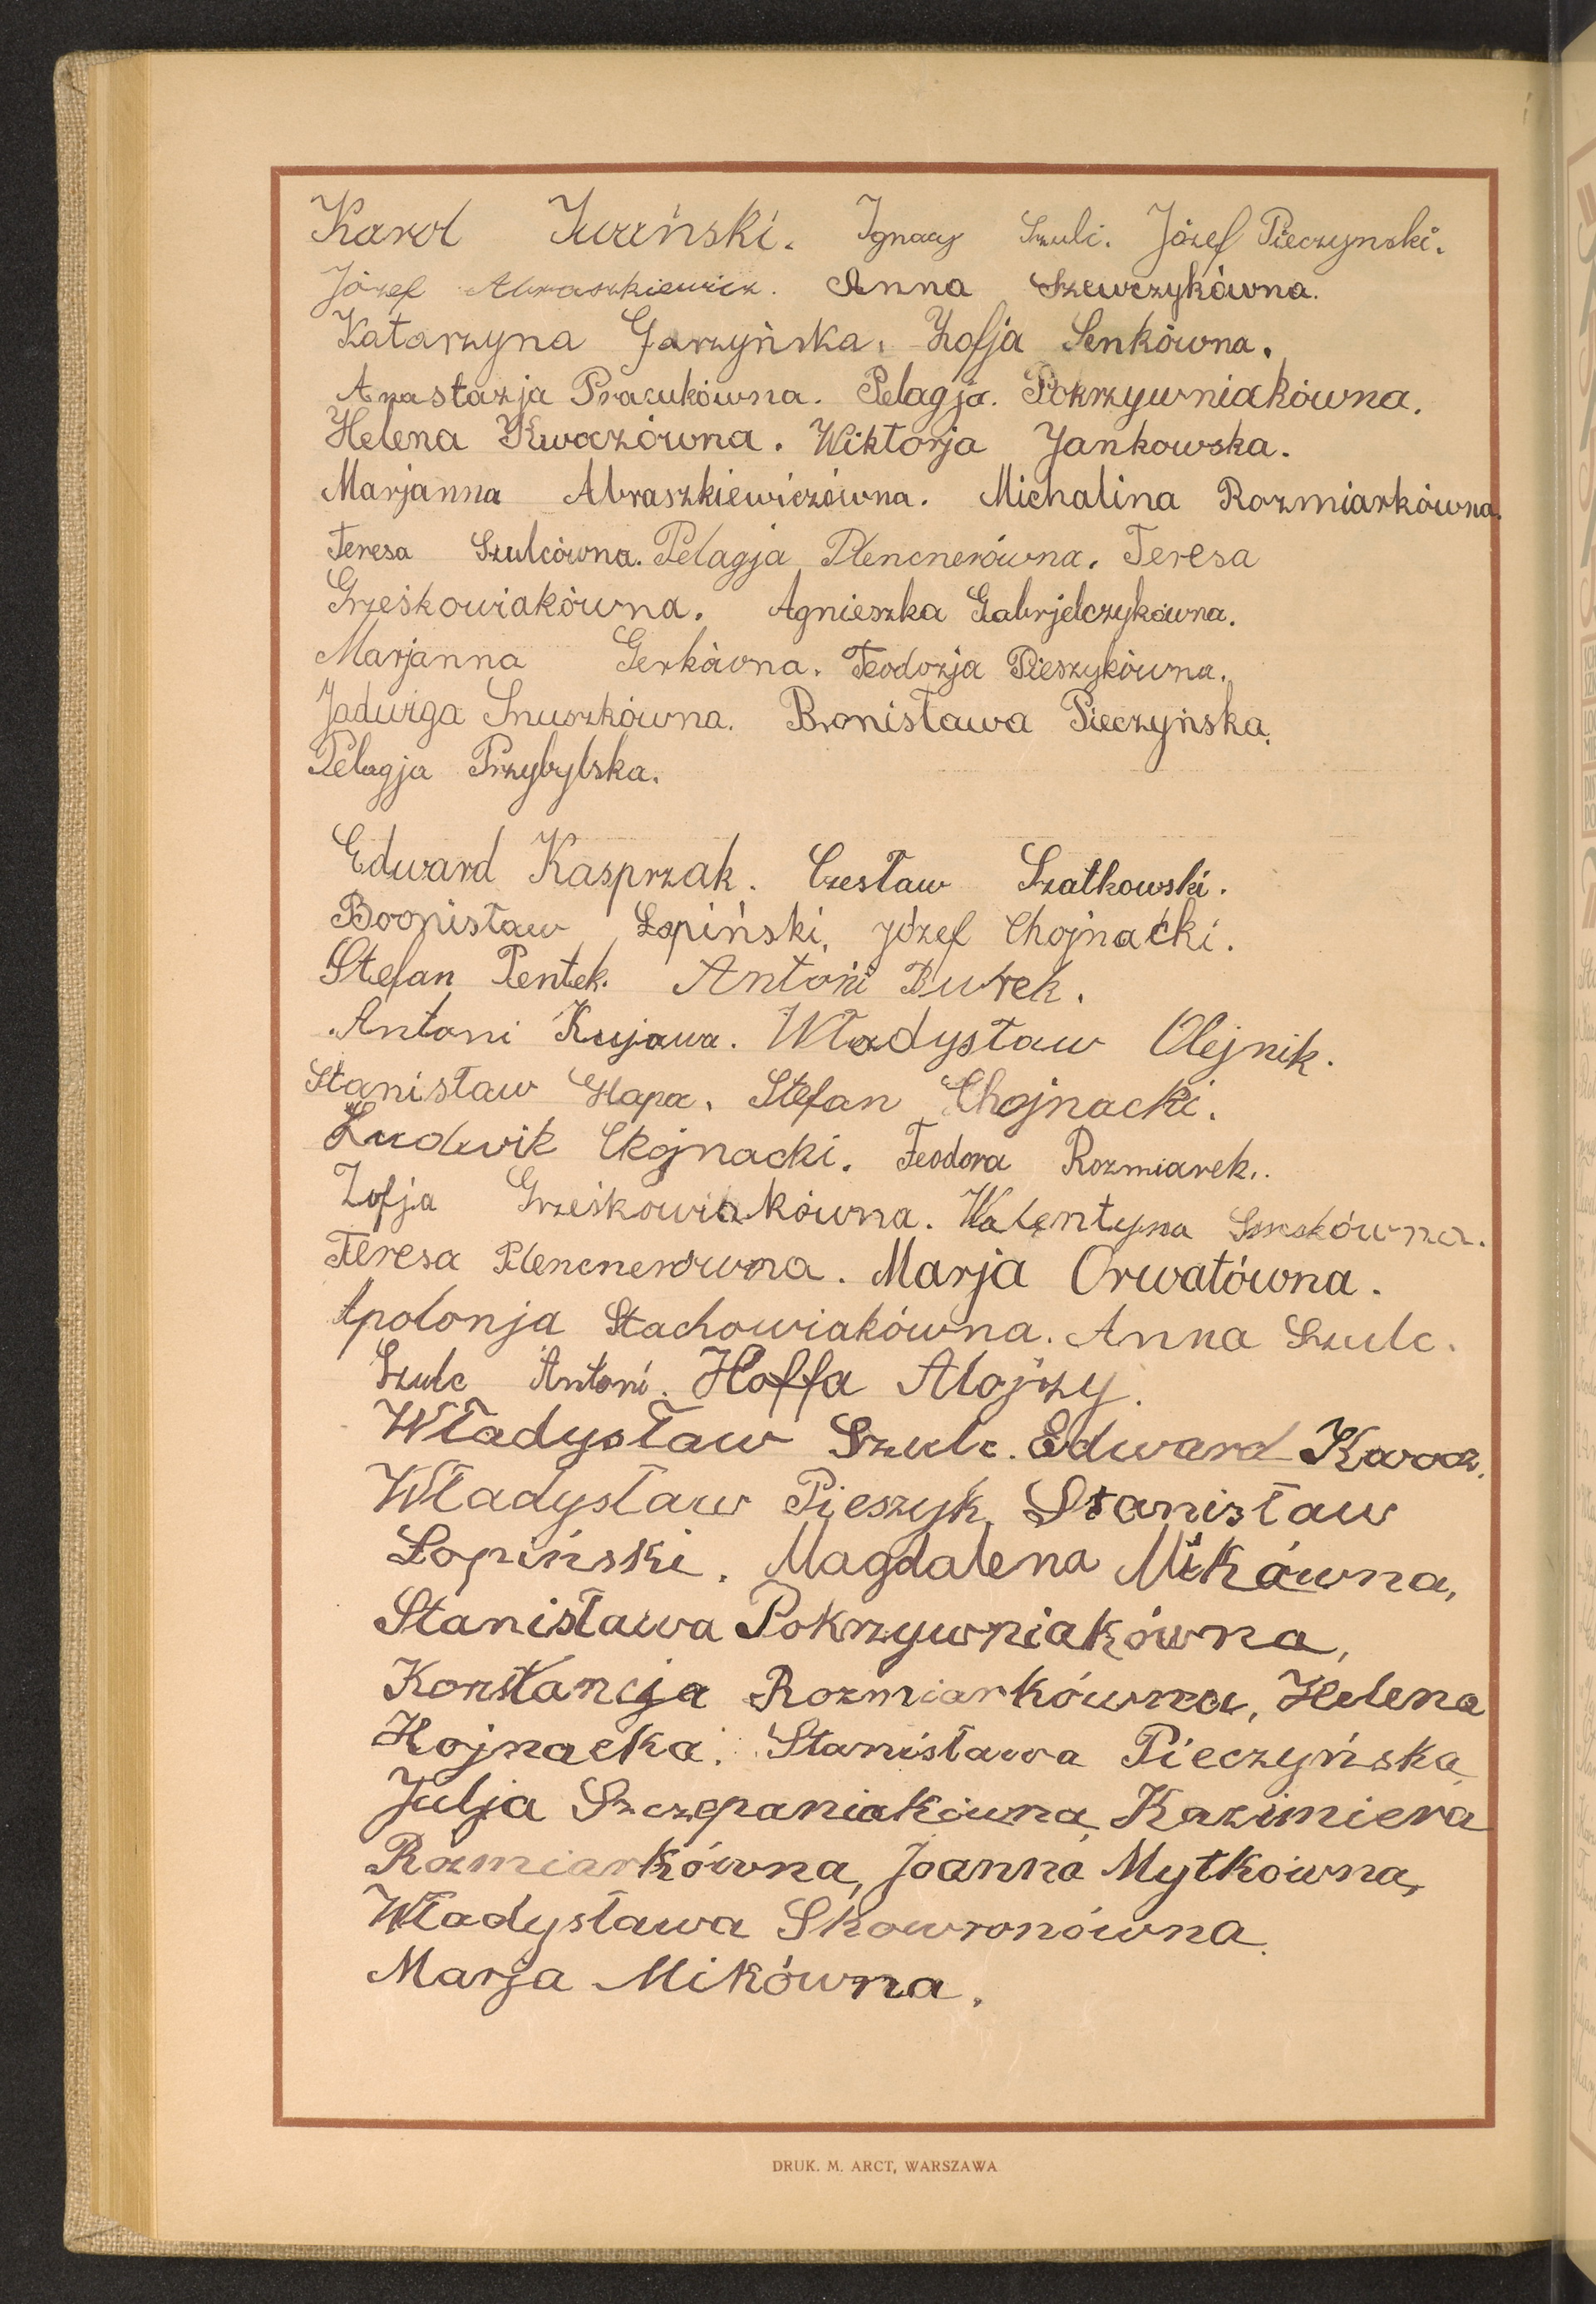 Karol Iwański. Ignacy Szulc. Józef Pieczynski.
Józef Abraszkiewicz. Anna Szewczykówna.
Katarzyna Garzyńska. Zofja Senkówna.
Anastazja Pracukówna. Pelagja. Pokrzywniakówna.
Helena Kwaczówna. Wiktorja Jankowska.
Marjanna Abraszkiewiczówna. Michalina Rozmiarkówna.
Teresa Szulcówna. Pelagja Plencnerówna. Teresa
Grześkowiakówna. Agnieszka Gabrjelczykówna.
Marjanna Gerkówna. Teodozja Pieszykówna.
Jadwiga Snuszkówna. Bronisława Pieczyńska.
Pelagja Przybylska.
Edward Kasprzak. Czesław Szatkowski.
Bronisław Łopiński, Józef Chojnacki.
Stefan Pentek. Antoni Burek.
Antoni Kujawa. Władysław Olejnik.
Stanisław Hapa. Stefan Chojnacki.
Ludwik Chojnacki. Teodora Rozmiarek.
Zofja Grześkowiakówna. Walentyna
Teresa Plencnerówna. Marja Orwatówna.
Apolonja Stachowiakówna. Anna Szulc.
Szulc Antoni. Hoffa Alojzy.
Władysław Szulc. Edward
Władysław Pieszyk, Stanisław
Łopiński. Magdalena Mikówna,
Stanisława Pokrzywniakówna,
Konstancja Rozmiarkówna, Helena
Hojnacka. Stanisława Pieczyńska,
Julja Szczepaniakówna, Kazimiera
Rozmiarkówna, Joanna Mytkówna,
Władysława Skowronówna.
Marja Mikówna.
DRUK. M. ARCT, WARSZAWA